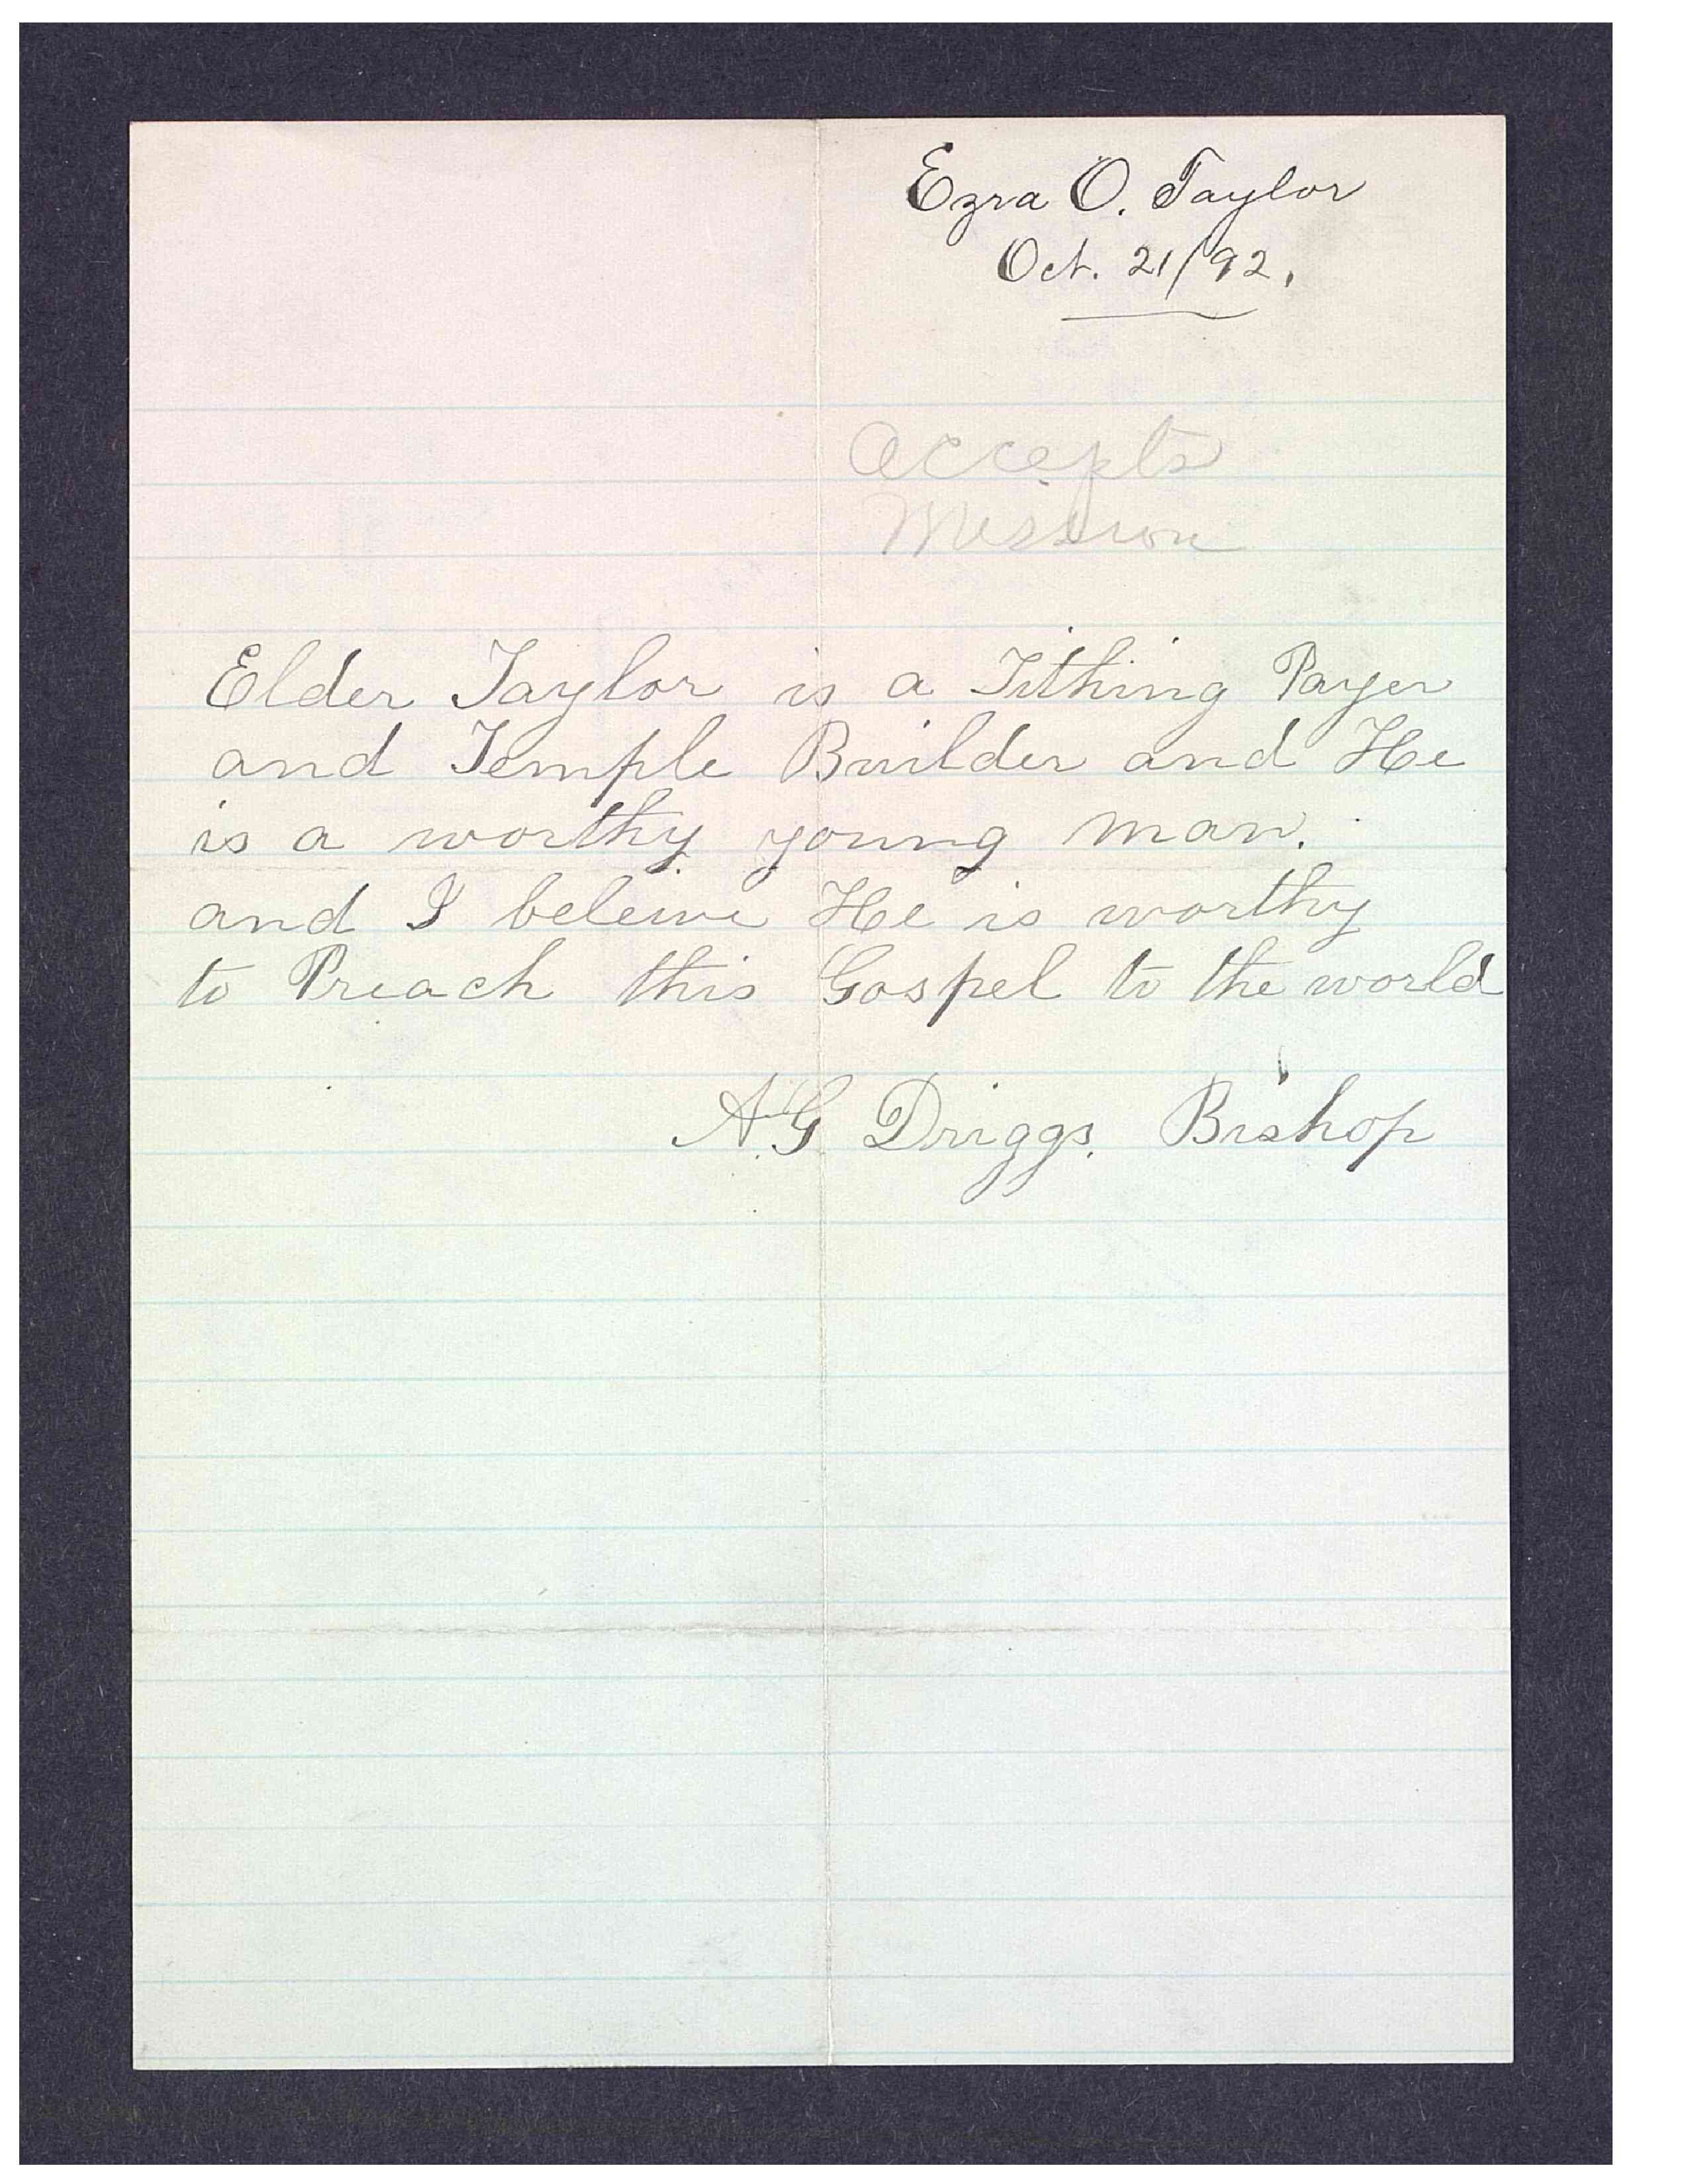 Ezra O. Taylor
Oct. 21/92.
accepts
Mission
Elder Taylor is a Tithing Payer
and Temple Builder and He
is a worthy young man.
and I beleive He is worthy
to Preach this Gospel to the world
A.G Driggs. Bishop